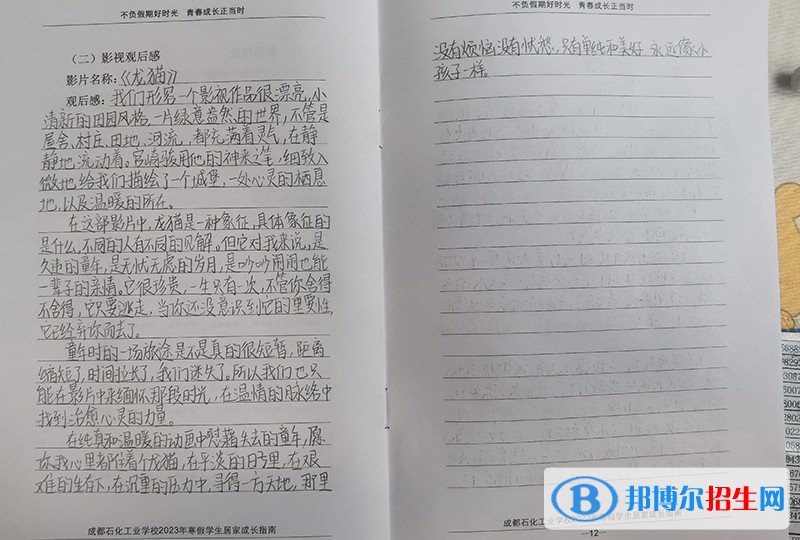 不负假期好时光 青春成长正当时
(二)影视观后感
影片名称:《龙猫》
观后感:我们形容一个影视作品很漂亮,小
清新的田园风格,一片绿意盎然的世界,不管是
屋舍、村庄、田地、河流,都充满着灵气,在静
静地流动着。宫崎骏用他的神来之笔,细致入
微地给我们描绘了一个城堡,一处心灵的栖息
地,以及温暖的所在。
在这部影片中,龙猫是一种象征,具体象征的
是什么,不同的人有不同的见解。但它对我来说,是
久违的童年,是无忧无虑的岁月,是吵吵闹闹也能
一辈子的亲情。它很珍贵,一生只有一次,不管你舍得
不舍得,它只要逃走,当你还没意识到它的重要性,
它已经弃你而去了。
童年时的一场旅途是不是真的很短暂,距离
缩短了,时间拉长了,我们迷失了。所以我们也只
能在影片中来缅怀那段时光,在温情的脉络中
找到治愈心灵的力量。
在纯真和温暖的动画中慰藉失去的童年,愿
你我心里都住着个龙猫,在平淡的日子里,在艰
难的生存下,在沉重的压力中,寻得一方天地,那里
成都石化工业学校2023年寒假学生居家成长指南
不负假期好时光 青春成长正当时
没有烦恼没有忧愁,只有单纯和美好,永远像小
孩子一样。
成都石化工业学校2023年寒假学生居家成长指南
—12—
邦博尔招生网